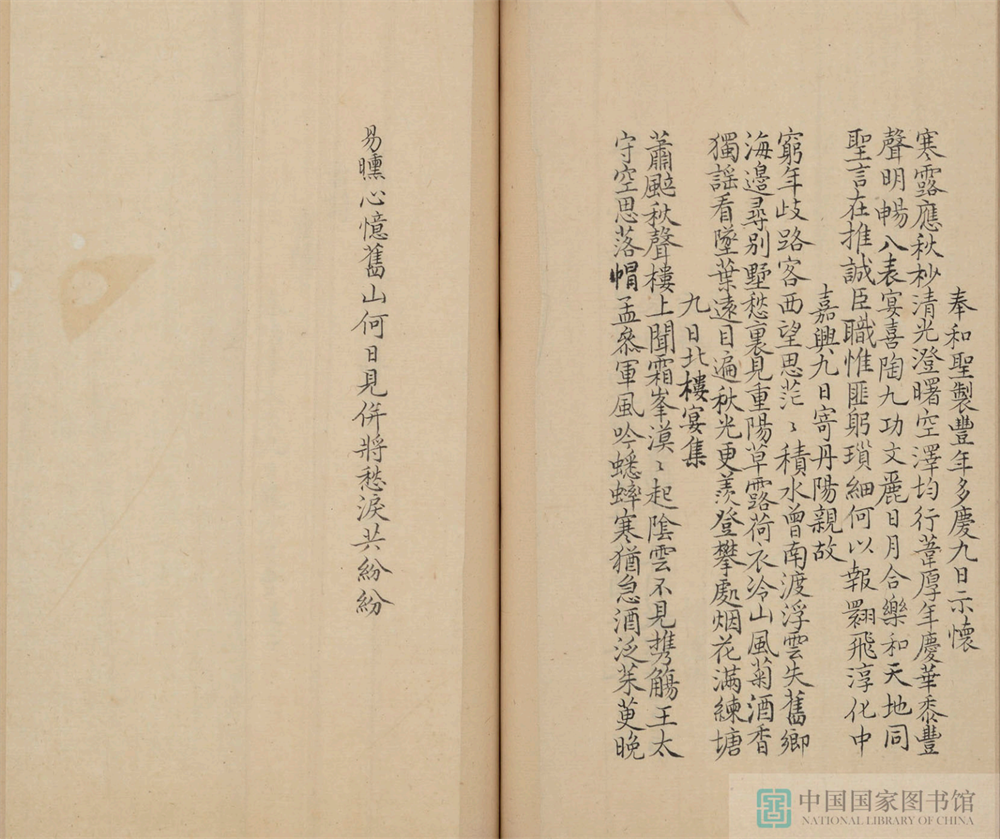 奉和聖製豐年多慶九日示懷
寒露應秋杪清光澄曙空澤均行葦厚年慶華黍豐
聲明暢八表宴喜陶九功文麗日月合樂和天地同
聖言在推誠臣職惟匪躬瑣細何以報翾飛淳化中
嘉興九日寄丹陽親故
窮年歧路客西望思茫〻積水曾南渡浮雲失舊鄉
海邊尋別墅愁裏見重陽草露荷衣冷山風菊酒香
獨謠看墜葉遠目遍秋光更羨登攀處烟花滿練塘
九日北樓宴集
蕭颼秋聲樓上聞霜峯漠〻起陰雲不見携觴王太
守空思落帽孟叅軍風吟蟋蟀寒猶急酒泛茱萸晚
易曛心憶舊山何日見併將愁淚共紛紛
中国国家图书馆
NATIONAL LIBRARY OF CHINA